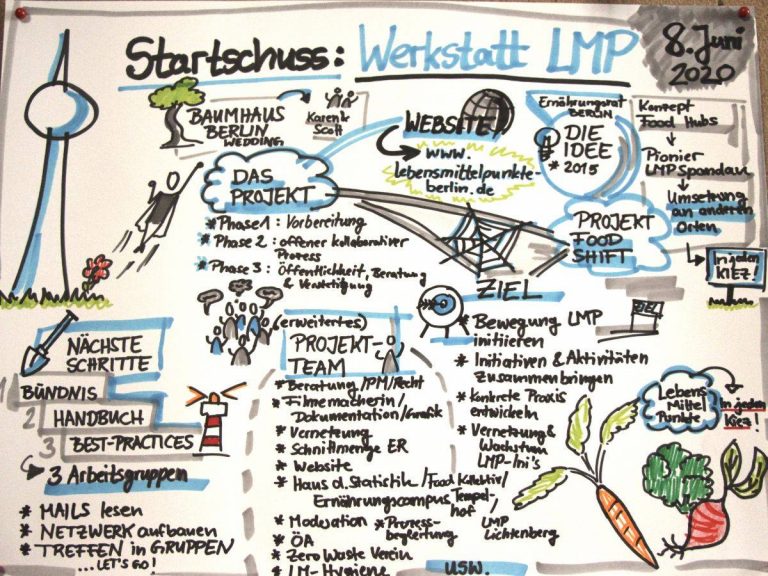 Startschuss: Werkstatt LMP
8. Juni
2020
BAUMHAUS
BERLIN
WEDDING
Karen &
Scott
WEBSITE!
www.
lebensmittelpunkte-
berlin.de
Ernährungsrat
BERLIN
DIE
IDEE
* 2015
Konzept
Food Hubs
Pionier
LMP Spandau
Umsetzung
an anderen
Orten
In jeden
KIEZ!
DAS
PROJEKT
* Phase 1 : Vorbereitung
* Phase 2 : offener kollaborativer
Prozess
* Phase 3 : Öffentlichkeit, Beratung
& Verstetigung
PROJEKT
FOOD
SHIFT
ZIEL
* Bewegung LMP
initiieren
* Initiativen & Aktivitäten
zusammenbringen
* konkrete Praxis
entwickeln
* Vernetzung &
Wachstum
LMP-Ini's
(erweitertes)
PROJEKT-
TEAM
* Beratung/PM/Recht
* Filmemacherin/
Dokumentation/Grafik
* Vernetzung
* Schnittmenge ER
* Website
* Haus d. Statistik/Food Kollektiv/
Ernährungscampus Tempel-
hof/
* Moderation * Prozess-
begleitung
LMP
Lichtenberg
* ÖA
* Zero Waste Verein
* LM-Hygiene
usw.
NÄCHSTE
SCHRITTE
1 BÜNDNIS
2 HANDBUCH
3 BEST-PRACTICES
3 Arbeitsgruppen
* MAILS lesen
* NETZWERK aufbauen
* TREFFEN in GRUPPEN
...LET'S GO!
Lebens
Mittel
Punkte
In jeden
Kiez!